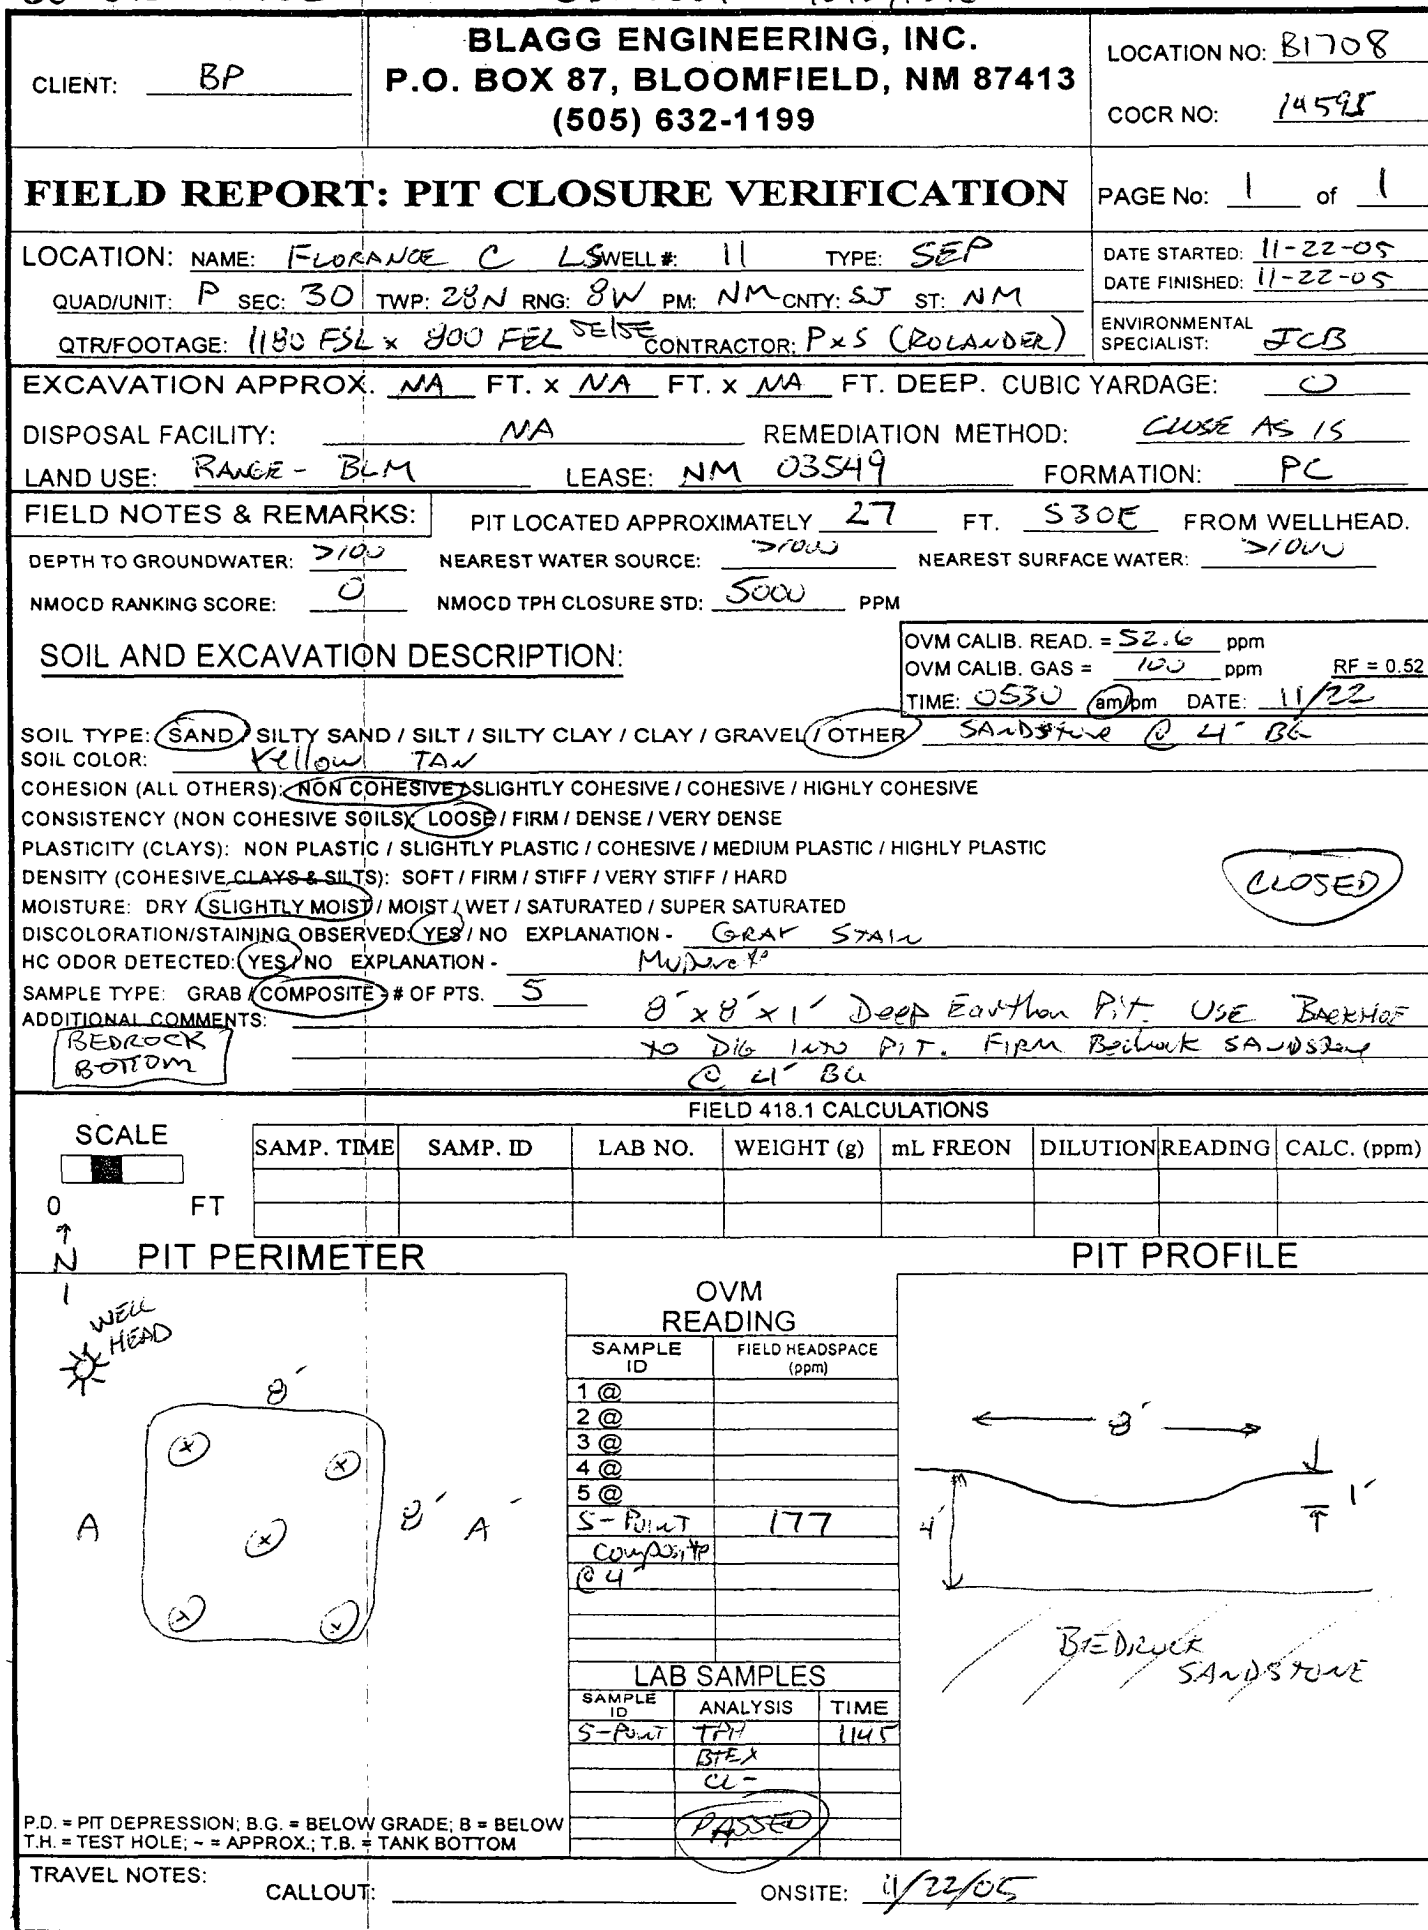 BLAGG ENGINEERING, INC.
P.O. BOX 87, BLOOMFIELD, NM 87413
(505) 632-1199
CLIENT: BP
LOCATION NO: B1708
COCR NO: 14595
FIELD REPORT: PIT CLOSURE VERIFICATION
PAGE No: 1 of 1
LOCATION: NAME: FLORANCE C LS WELL #: 11 TYPE: SEP
QUAD/UNIT: P SEC: 30 TWP: 28N RNG: 8W PM: NM CNTY: SJ ST: NM
QTR/FOOTAGE: 1180 FSL x 800 FEL SE/SE CONTRACTOR: P x S (ROLANDER)
DATE STARTED: 11-22-05
DATE FINISHED: 11-22-05
ENVIRONMENTAL SPECIALIST: JCB
EXCAVATION APPROX. NA FT. x NA FT. x NA FT. DEEP. CUBIC YARDAGE: 0
DISPOSAL FACILITY: NA REMEDIATION METHOD: CLOSE AS IS
LAND USE: RANGE - BLM LEASE: NM 03549 FORMATION: PC
FIELD NOTES & REMARKS: PIT LOCATED APPROXIMATELY 27 FT. S30E FROM WELLHEAD.
DEPTH TO GROUNDWATER: >100 NEAREST WATER SOURCE: >1000 NEAREST SURFACE WATER: >1000
NMOCD RANKING SCORE: 0 NMOCD TPH CLOSURE STD: 5000 PPM
SOIL AND EXCAVATION DESCRIPTION:
OVM CALIB. READ. = 52.6 ppm
OVM CALIB. GAS = 100 ppm RF = 0.52
TIME: 0530 am/pm DATE: 11/22
SOIL TYPE: SAND / SILTY SAND / SILT / SILTY CLAY / CLAY / GRAVEL / OTHER SANDSTONE @ 4' BG
SOIL COLOR: Yellow TAN
COHESION (ALL OTHERS): NON COHESIVE / SLIGHTLY COHESIVE / COHESIVE / HIGHLY COHESIVE
CONSISTENCY (NON COHESIVE SOILS): LOOSE / FIRM / DENSE / VERY DENSE
PLASTICITY (CLAYS): NON PLASTIC / SLIGHTLY PLASTIC / COHESIVE / MEDIUM PLASTIC / HIGHLY PLASTIC
DENSITY (COHESIVE CLAYS & SILTS): SOFT / FIRM / STIFF / VERY STIFF / HARD
CLOSED
MOISTURE: DRY / SLIGHTLY MOIST / MOIST / WET / SATURATED / SUPER SATURATED
DISCOLORATION/STAINING OBSERVED: YES / NO EXPLANATION - GRAY STAIN
HC ODOR DETECTED: YES / NO EXPLANATION -
SAMPLE TYPE: GRAB / COMPOSITE - # OF PTS. 5
ADDITIONAL COMMENTS: 8' x 8' x 1' Deep Earthen Pit. USE BACKHOE
to DIG INTO PIT. FIRM Bedrock SANDSTONE
@ 4' BG
BEDROCK
BOTTOM
FIELD 418.1 CALCULATIONS
SCALE
0 FT
SAMP. TIME SAMP. ID LAB NO. WEIGHT (g) mL FREON DILUTION READING CALC. (ppm)
N
PIT PERIMETER
WELL
HEAD
8'
8'
A A'
OVM
READING
SAMPLE ID FIELD HEADSPACE (ppm)
1 @
2 @
3 @
4 @
5 @
5-POINT 177
Composite
@ 4'
LAB SAMPLES
SAMPLE ID ANALYSIS TIME
5-Point TPH 1145
BTEX
CL-
PASSED
PIT PROFILE
8'
1'
4'
BEDROCK
SANDSTONE
P.D. = PIT DEPRESSION; B.G. = BELOW GRADE; B = BELOW
T.H. = TEST HOLE; ~ = APPROX.; T.B. = TANK BOTTOM
TRAVEL NOTES: CALLOUT: ONSITE: 11/22/05